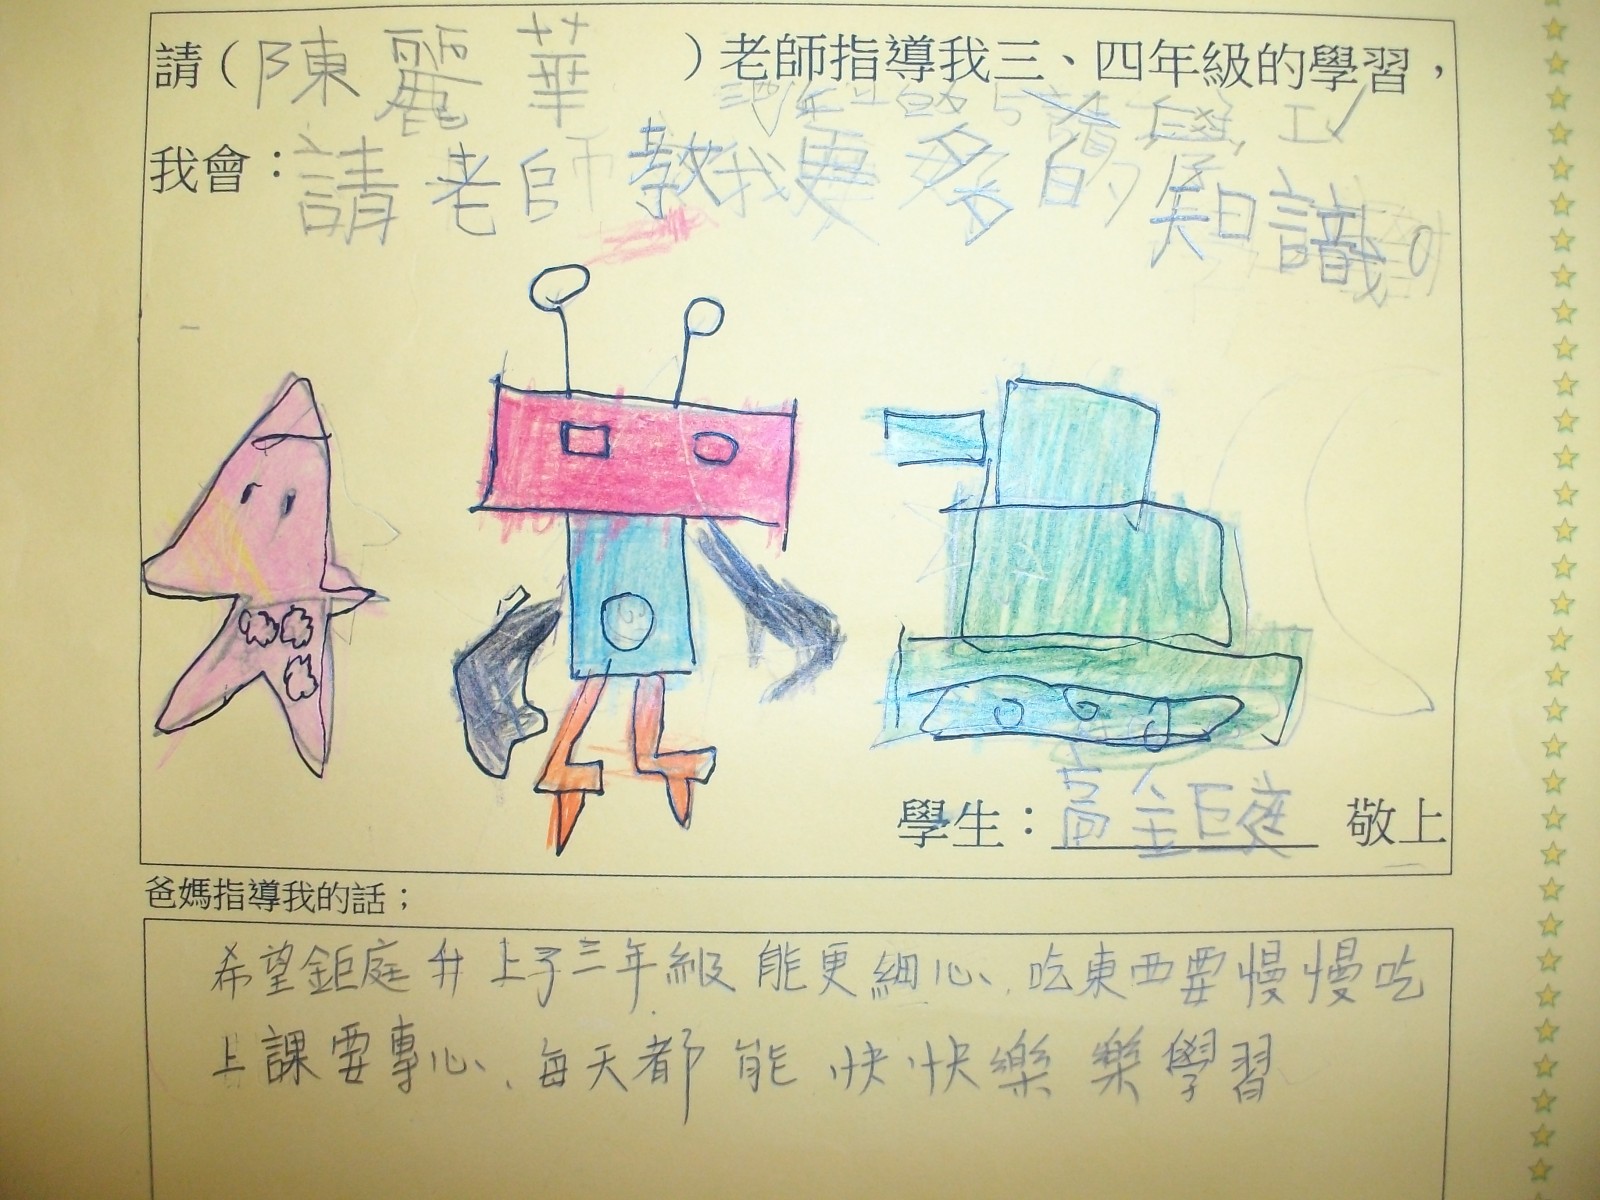 請（陳麗華）老師指導我三、四年級的學習，
我會：請老師教我更多的知識。
學生：高鉅庭 敬上
爸媽指導我的話；
希望鉅庭升上了三年級能更細心、吃東西要慢慢吃
上課要專心、每天都能快快樂樂學習